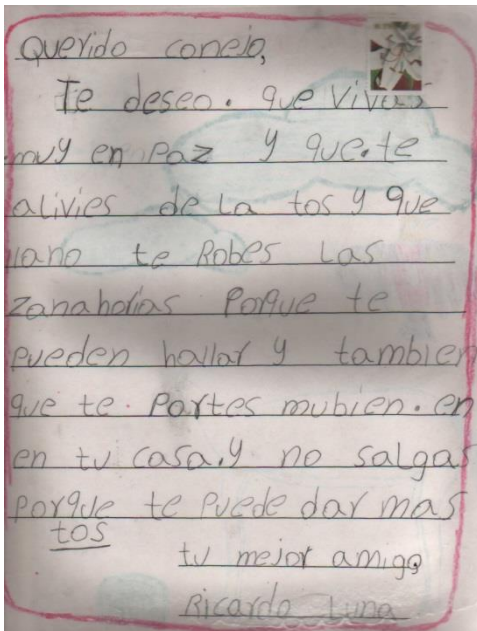 Querido conejo,
Te deseo. que vivas
muy en paz y que.te
alivies de la tos y que
llano te Robes las
zanahorias porque te
pueden hallar y tambien
que te. Partes mubien. en
en tu casa.y no salgas
porque te puede dar mas
tos
tu mejor amigo
Ricardo Luna